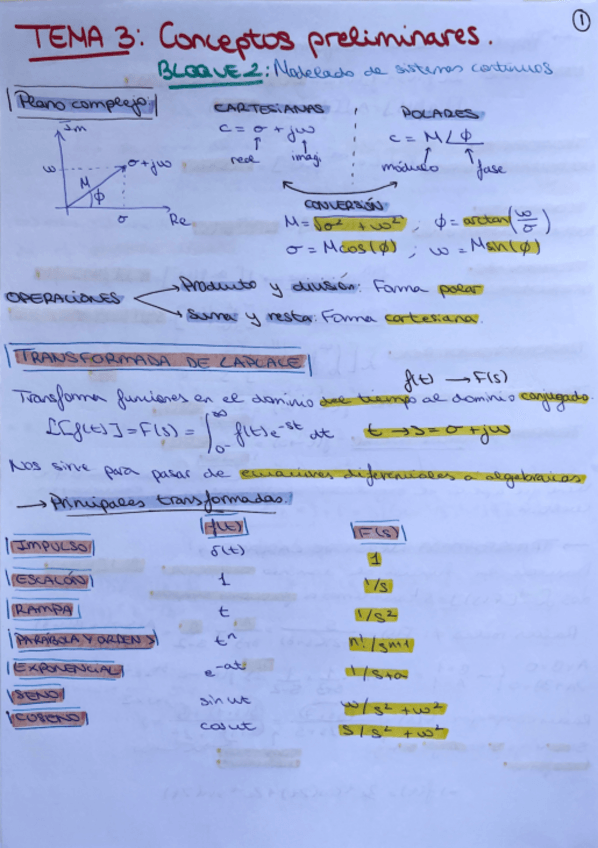 1
TEMA 3: Conceptos preliminares.
BLOQUE 2: Modelado de sistemas continuos
Plano complejo
Im
ω
M
ϕ
σ+jω
σ
Re
CARTESIANAS
c = σ + jω
real imagi
POLARES
c = M∠ϕ
módulo fase
CONVERSIÓN
M = √σ² + ω² ; ϕ = arctan(ω/σ)
σ = Mcos(ϕ) ; ω = Msin(ϕ)
OPERACIONES
Producto y división: Forma polar
Suma y resta: Forma cartesiana.
TRANSFORMADA DE LAPLACE
f(t) → F(s)
Transforma funciones en el dominio del tiempo al dominio conjugado.
L[f(t)] = F(s) = ∫₀₋^∞ f(t)e^-st dt t → s = σ + jω
Nos sirve para pasar de ecuaciones diferenciales a algebraicas
→ Principales transformadas:
f(t) F(s)
IMPULSO δ(t) 1
ESCALÓN 1 1/s
RAMPA t 1/s²
PARÁBOLA Y ORDEN > tⁿ n!/sⁿ⁺¹
EXPONENCIAL e^-at 1/s+a
SENO sin ωt ω/s² + ω²
COSENO cos ωt s/s² + ω²